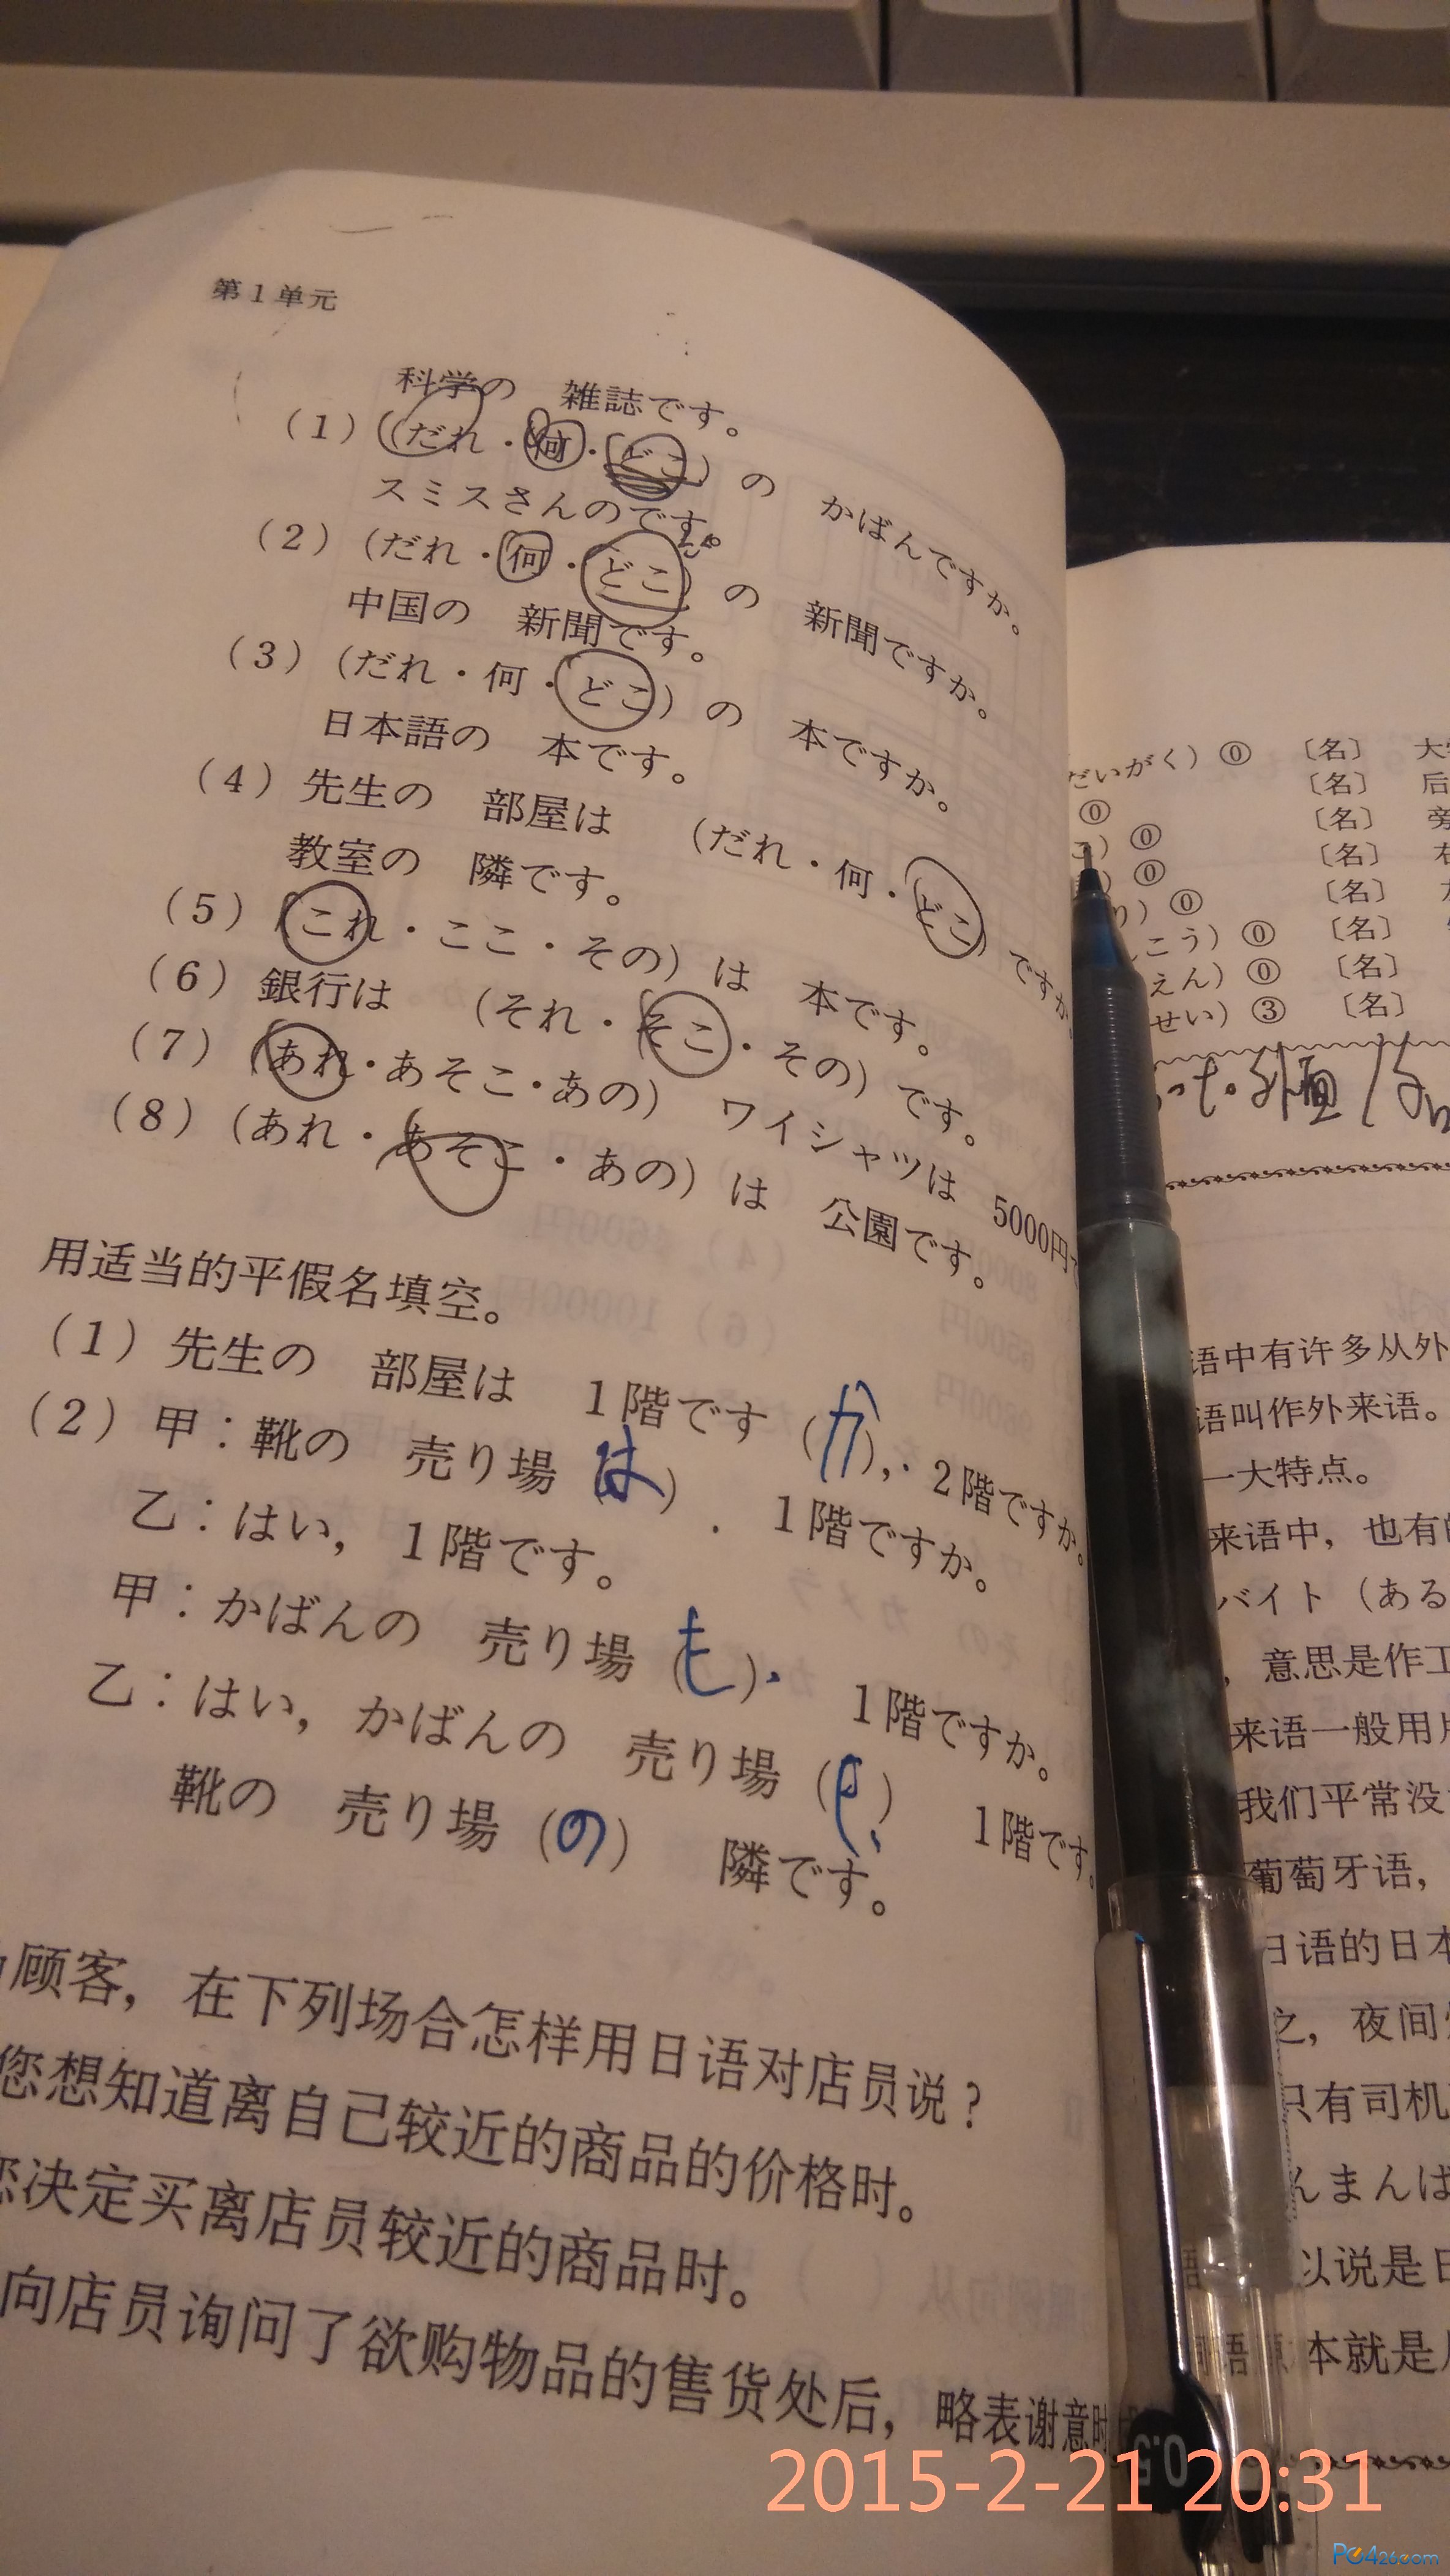 第1单元
科学の 雑誌です。
(1) (だれ・何・どこ) の かばんですか。
スミスさんのです。
(2) (だれ・何・どこ) の 新聞ですか。
中国の 新聞です。
(3) (だれ・何・どこ) の 本ですか。
日本語の 本です。
(4) 先生の 部屋は (だれ・何・どこ) ですか。
教室の 隣です。
(5) (これ・ここ・その) は 本です。
(6) 銀行は (それ・そこ・その) です。
(7) (あれ・あそこ・あの) ワイシャツは 5000円で
(8) (あれ・あそこ・あの) は 公園です。
用适当的平假名填空。
(1) 先生の 部屋は 1階です (か), 2階ですか。
(2) 甲:靴の 売り場 (は) 1階ですか。
乙:はい, 1階です。
甲:かばんの 売り場 (も) 1階ですか。
乙:はい, かばんの 売り場 ( ) 1階です。
靴の 売り場 (の) 隣です。
顾客, 在下列场合怎样用日语对店员说?
您想知道离自己较近的商品的价格时。
您决定买离店员较近的商品时。
向店员询问了欲购物品的售货处后, 略表谢意时
だいがく) ⓪ 〔名〕 大
⓪ 〔名〕 后
こ) ⓪ 〔名〕 旁
⓪ 〔名〕 右
り) ⓪ 〔名〕
こう) ⓪ 〔名〕
えん) ⓪ 〔名〕
せい) ③ 〔名〕
语中有许多从外
语叫作外来语。
一大特点。
来语中, 也有
バイト (ある
, 意思是作工
来语一般用片
我们平常没
葡萄牙语,
日语的日本
之, 夜间
只有司机
んまんば
以说是日
本就是
0.5
2015-2-21 20:31
PC426com